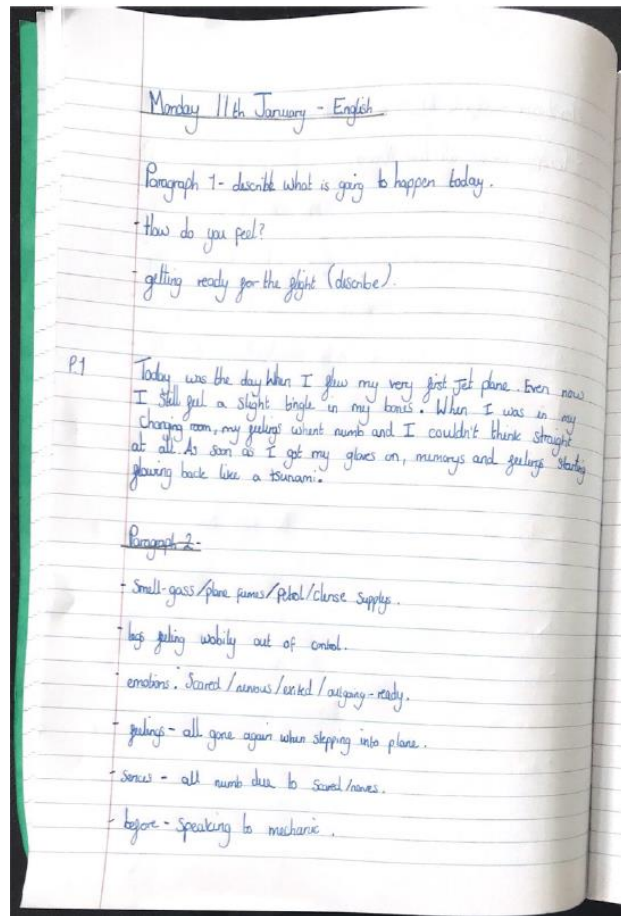 Monday 11th January - English
Paragraph 1 - describe what is going to happen today.
- How do you feel?
- getting ready for the flight (describe).
P.1 Today was the day when I flew my very first Jet plane. Even now
I still feel a slight tingle in my bones. When I was in my
Changing room, my feelings whent numb and I couldn't think straight
at all. As soon as I got my gloves on, mumorys and feelings starting
flowing back like a tsunami.
Paragraph 2 -
- Smell - gass/plane fumes/Petrol/clense supplys.
- legs feling wobily out of control.
- emotions. Scared/nervous/exited/outgoing - ready.
- feelings - all gone again when stepping into plane.
- Sences - all numb due to scared/nerves.
- before - speaking to mechanic.